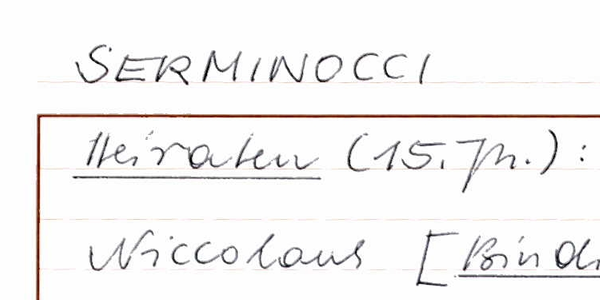 SERMINOCCI
Heiraten (15. Jh.) :
Niccolaus [Bindi